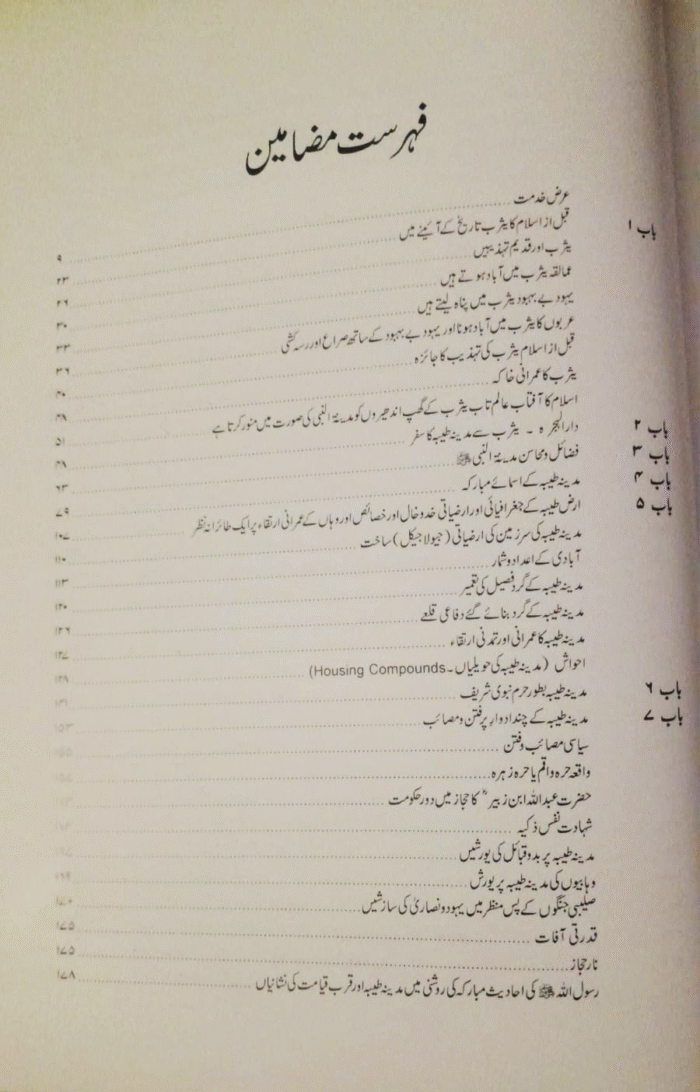 فہرست مضامین
عرض خدمت
باب ۱ قبل از اسلام کا یثرب تاریخ کے آئینے میں ۹
یثرب اور قدیم تہذیبیں ۲۳
عمالقہ یثرب میں آباد ہوتے ہیں ۲۶
یہود بے بہبود یثرب میں پناہ لیتے ہیں ۳۰
عربوں کا یثرب میں آباد ہونا اور یہود بے بہبود کے ساتھ صراع اور رسہ کشی ۳۳
قبل از اسلام یثرب کی تہذیب کا جائزہ ۳۶
یثرب کا عمرانی خاکہ ۴۰
باب ۲ اسلام کا آفتاب عالم تاب یثرب کے گھپ اندھیروں کو مدینۃ النبی کی صورت میں منور کرتا ہے ۴۸
باب ۳ دارالہجرہ ۔ یثرب سے مدینہ طیبہ کا سفر ۵۱
باب ۴ فضائل و محاسن مدینۃ النبی ﷺ
باب ۵ مدینہ طیبہ کے اسمائے مبارکہ ۶۳
ارض طیبہ کے جغرافیائی اور ارضیاتی خدوخال اور خصائص اور وہاں کے عمرانی ارتقاء پر ایک طائرانہ نظر ۷۹
مدینہ طیبہ کی سرزمین کی ارضیاتی (جیولاجیکل) ساخت ۱۰۷
آبادی کے اعداد و شمار ۱۱۰
مدینہ طیبہ کے گرد فصیل کی تعمیر ۱۱۳
مدینہ طیبہ کے گرد بنائے گئے دفاعی قلعے ۱۲۰
مدینہ طیبہ کا عمرانی اور تمدنی ارتقاء ۱۲۶
احواش (مدینہ طیبہ کی حویلیاں۔Housing Compounds) ۱۲۷
باب ۶ مدینہ طیبہ بطور حرم نبوی شریف ۱۲۸
باب ۷ مدینہ طیبہ کے چند ادوارِ پرفتن و مصائب ۱۳۱
سیاسی مصائب و فتن ۱۵۳
واقعہ حرہ واقم یا حرہ زہرہ
حضرت عبداللہ ابن زبیرؓ کا حجاز میں دور حکومت
شہادت نفس ذکیہ
مدینہ طیبہ پر بدو قبائل کی یورشیں
وہابیوں کی مدینہ طیبہ پر یورش
صلیبی جنگوں کے پس منظر میں یہود و نصاریٰ کی سازشیں ۱۷۰
قدرتی آفات ۱۷۵
نار حجاز ۱۷۵
رسول اللہ ﷺ کی احادیث مبارکہ کی روشنی میں مدینہ طیبہ اور قرب قیامت کی نشانیاں ۱۷۸